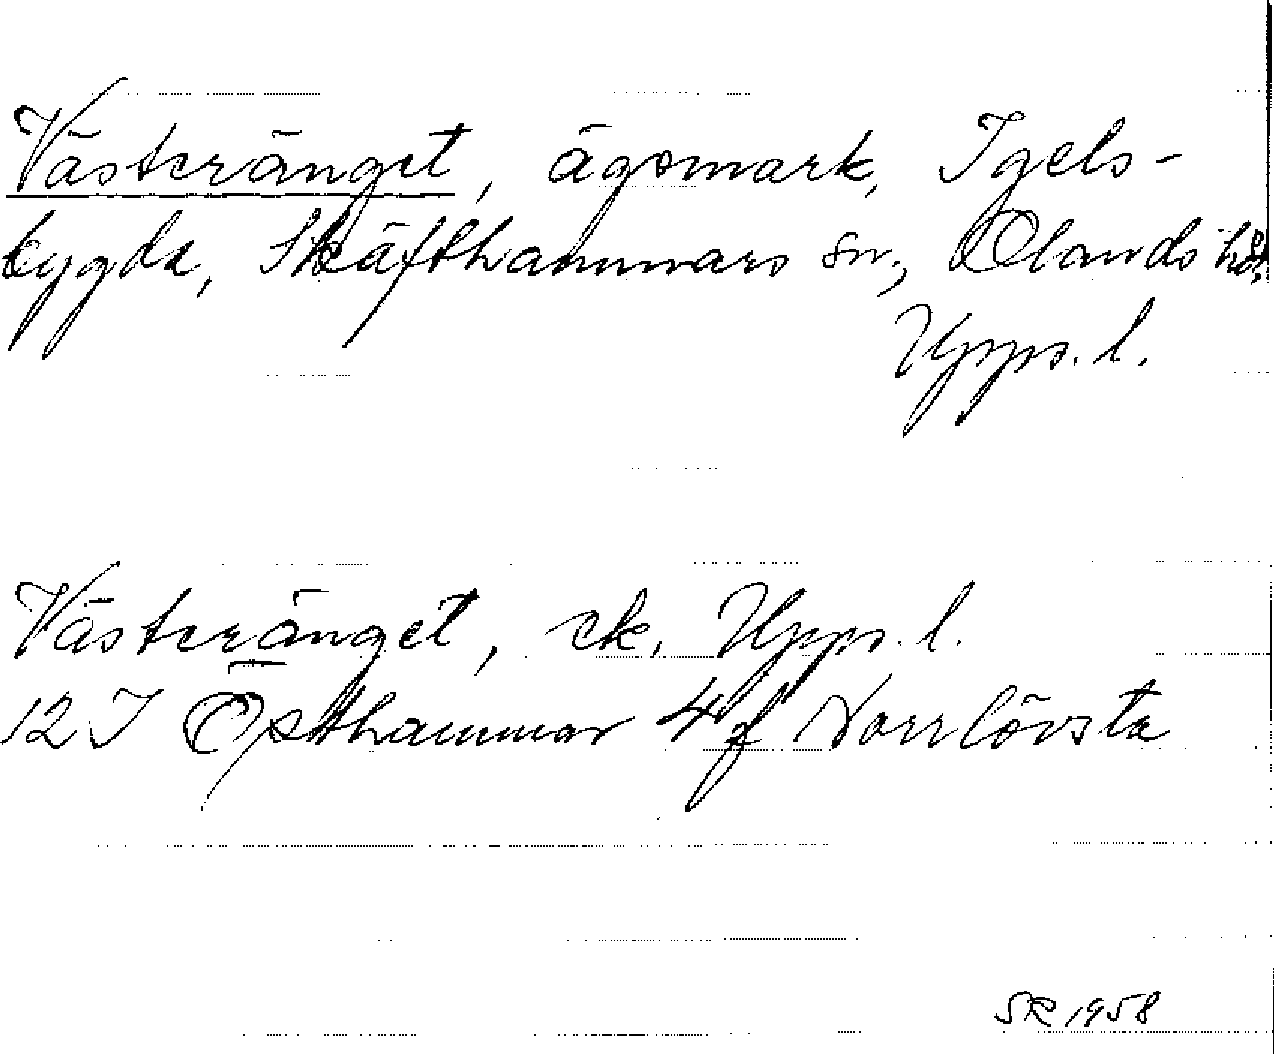 Västeränget, ägomark, Igels-
bygda, Skäfthammars sn, Olands hd,
Upps. l.
Västeränget, ek. Upps. l.
12 I Östhammar 4 f Norrlövsta
SR 1958